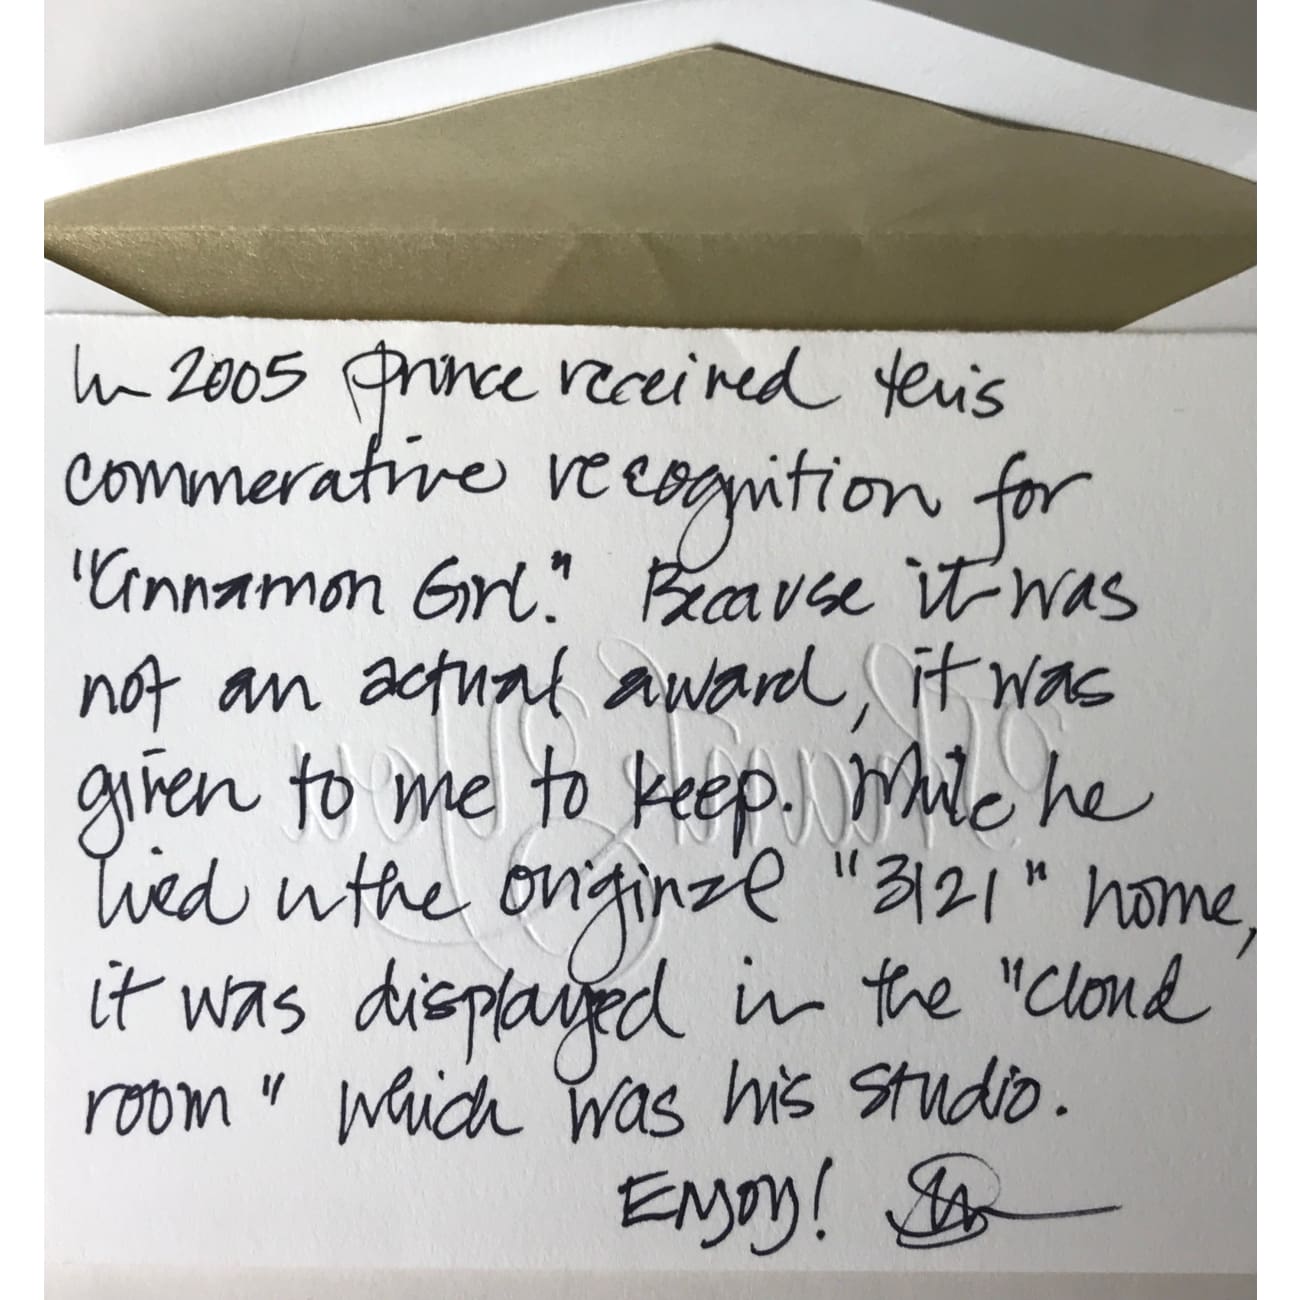 In 2005 Prince received this
commerative recognition for
"Cinnamon Girl." Because it was
not an actual award, it was
given to me to keep. While he
lived in the original "3121" home,
it was displayed in the "cloud
room" which was his studio.
Enjoy!
Thank You